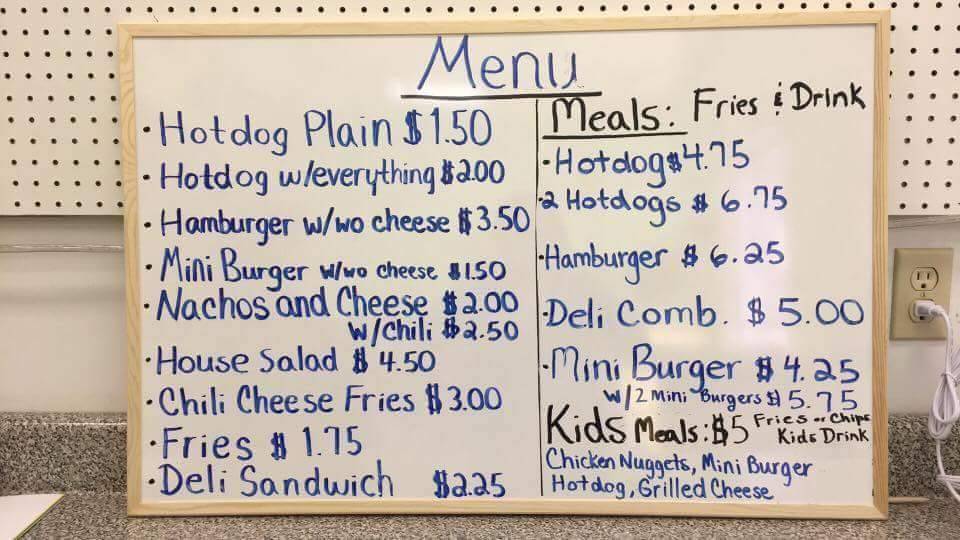 Menu
• Hotdog Plain $1.50
• Hotdog w/everything $2.00
• Hamburger w/wo cheese $3.50
• Mini Burger w/wo cheese $1.50
• Nachos and Cheese $2.00
w/Chili $2.50
• House Salad $4.50
• Chili Cheese Fries $3.00
• Fries $1.75
• Deli Sandwich $2.25
Meals: Fries & Drink
• Hotdog $4.75
• 2 Hotdogs $6.75
• Hamburger $6.25
• Deli Comb. $5.00
• Mini Burger $4.25
w/2 Mini Burgers $5.75
Kids Meals: $5 Fries or Chips
Kids Drink
Chicken Nuggets, Mini Burger
Hotdog, Grilled Cheese